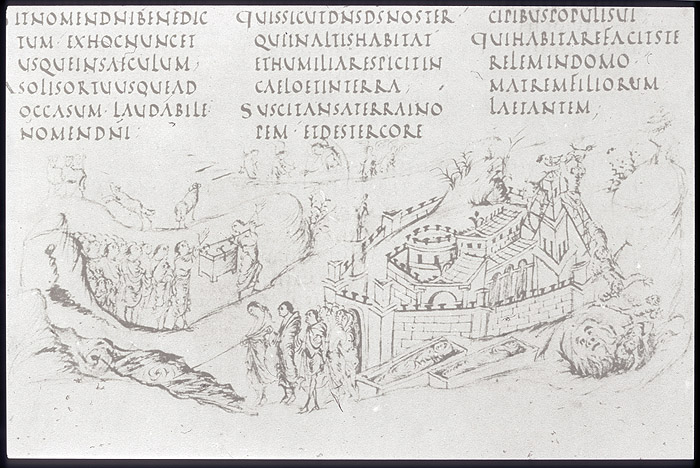 ITNOMENDNIBENEDIC
TUM EXHOCNUNCET
USQUEINSAECULUM;
ASOLISORTUUSQUEAD
OCCASUM· LAUDABILE
NOMENDNI·
QUISSICUTDNSDSNOSTER
QUIINALTISHABITAT
ETHUMILIARESPICITIN
CAELOETINTERRA;
SUSCITANSATERRAINO
PEM· ETDESTERCORE
CIPIBUSPOPULISUI
QUIHABITAREFACITSTE
RELEMINDOMO·
MATREMFILIORUM
LAETANTEM;